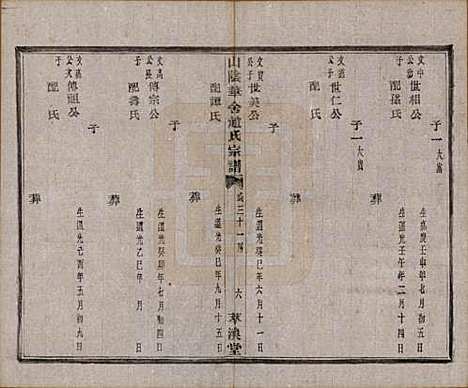 文中公子 世相公
生嘉慶壬申年七月初五
子一 大富
配孫氏
生道光壬午年二月十四
葬
世仁公
子一 大寶
配 氏
葬
文貴公子 世美公
生道光癸巳年六月十一
子
配譚氏
生道光癸巳年九月十五
葬
山陰華舍趙氏宗譜
卷三十一
六
萃渙堂
傳宗公
生道光癸卯年七月初四
子
配壽氏
生道光乙巳年 月 日
葬
傳祖公
生道光己酉年五月初九
子
配 氏
葬